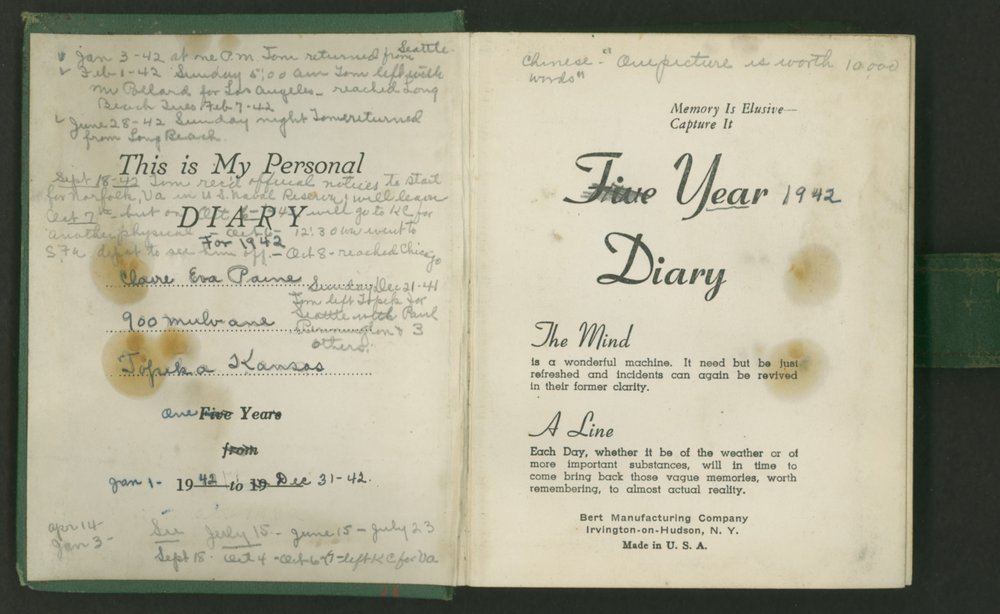 Jan 3-42 at one P.M Tom returned from Seattle.
Feb 1-42 Sunday 5:00 am Tom left with
Mr Pollard for Los Angeles - reached Long
Beach Tues Feb 7-42
June 28-42 Sunday night Tom returned
from Long Beach.
This is My Personal
Sept 18-42 Tom rec'd official notices to start
for Norfolk, Va in U S. Naval Reserve, will leave
Oct 7th but on Oct 6 will go to K C for
DIARY
another physical - Oct 6 - 12:30 we went to
For 1942
S. Fe depot to see him off. - Oct 8 - reached Chicago
Claire Eva Paine
Sunday Dec 21-41
Tom left Topeka for
900 Mulvane
Seattle with Paul
Pennington & 3
others.
Topeka Kansas
one Five Years
from
Jan 1 - 1942 to 19 Dec 31-42.
apr 14
Jan 3-
See July 15 - June 15 - July 23
Sept 18 - Oct 4 - Oct 6-7-left K C for Va
Chinese - "One picture is worth 10000
words"
Memory Is Elusive—
Capture It
Five Year 1942
Diary
The Mind
is a wonderful machine. It need but be just
refreshed and incidents can again be revived
in their former clarity.
A Line
Each Day, whether it be of the weather or of
more important substances, will in time to
come bring back those vague memories, worth
remembering, to almost actual reality.
Bert Manufacturing Company
Irvington-on-Hudson, N. Y.
Made in U. S. A.